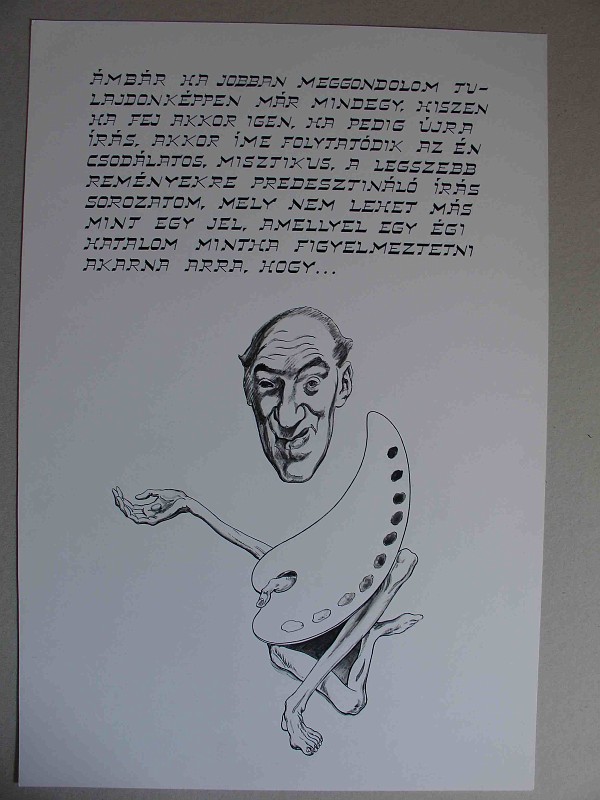 ÁMBÁR HA JOBBAN MEGGONDOLOM TU-
LAJDONKÉPPEN MÁR MINDEGY, HISZEN
HA FEJ AKKOR IGEN, HA PEDIG ÚJRA
ÍRÁS, AKKOR ÍME FOLYTATÓDIK AZ ÉN
CSODÁLATOS, MISZTIKUS, A LEGSZEBB
REMÉNYEKRE PREDESZTINÁLÓ ÍRÁS
SOROZATOM, MELY NEM LEHET MÁS
MINT EGY JEL, AMELLYEL EGY ÉGI
HATALOM MINTHA FIGYELMEZTETNI
AKARNA ARRA, HOGY...